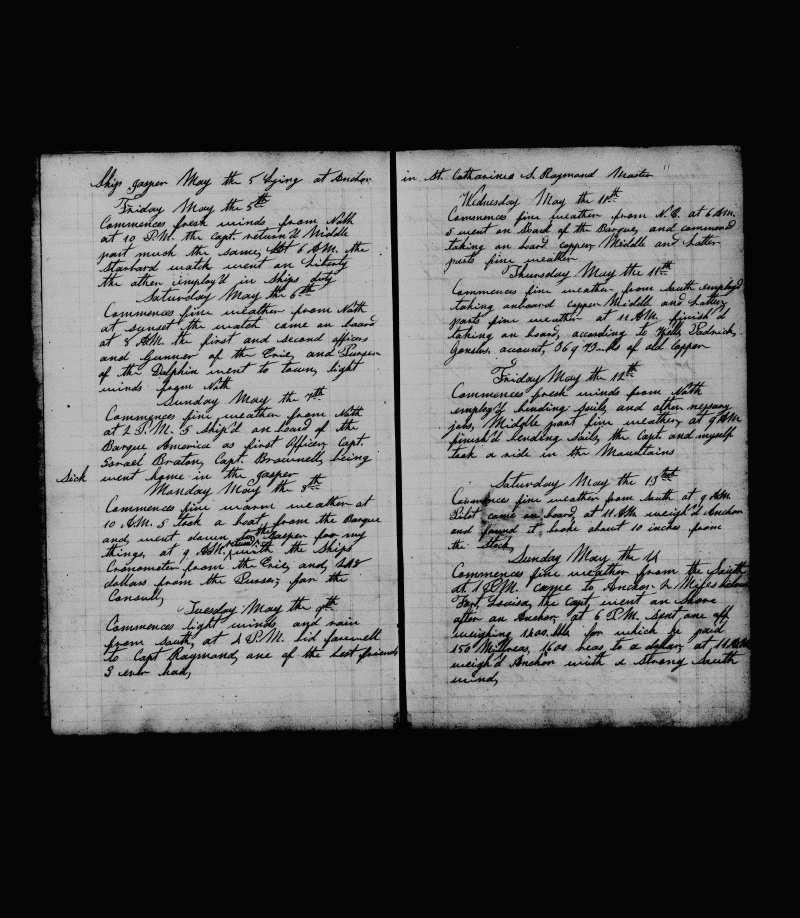 Ship Jasper May the 5 Lying at Anchor
Friday May the 5th
Commences fresh winds from Noth
at 10 P.M. the Capt. return'd Middle
part much the same, At 6 A.M. the
Starbord watch went on Liberty
the other employ'd in Ships duty
Saturday May the 6th
Commences fine weather from Noth
at sunset the watch came on board
at 8 A.M. the first and second officers
and Gunner of the Erie, and Purser
of the Dolphin went to town, light
winds from Noth
Sunday May the 7th
Commences fine weather from Noth
at 2 P.M. I Ship'd on board of the
Barque America as first Officer, Capt.
Israel Braton, Capt. Brownell, being
Sick went home in the Jasper
Monday May the 8th
Commences fine warm weather at
10 A.M. I took a boat from the Barque
and went down to the Jasper for my
things, at 9 A.M. return'd with the Ships
Cronometer from the Erie, and
dollars from the Purser, for the
Consull,
Tuesday May the 9th
Commences light winds and rain
from South, at P.M. bid farewell
to Capt Raymond, one of the best friends
I ever had,
in St. Catharines S. Raymond Master
Wednesday May the
Commences fine weather from N.E. at 6 A.M.
I went on board of the Barque, and commenced
taking on board copper, Middle and Latter
parts fine weather
Thursday May the 11th
Commences fine weather from South employ'd
taking onboard copper Middle and Latter
parts fine weather at 11 A.M. finish'd
taking on board, according to
account, of old Copper
Friday May the 12th
Commences fresh winds from Noth
employ'd bending sails, and other nessary
jobs, Middle part fine weather, at 9 A.M.
finish'd bending Sails, the Capt and myself
took a ride in the Mountains
Saturday May the 13
Commences fine weather from South at 9 A.M.
Pilot came on board, at 11 A.M. weigh'd Anchor
and found it broke about 10 inches from
the Stock,
Sunday May the 14
Commences fine weather from the South
at 1 P.M. came to Anchor 2 Miles
Fort Louisa, the Capt. went on shore
after an Anchor, at 6 P.M. sent one off
weighing lbs for which he paid
150 Millreas, 1600 reas to a dollar, at 11 A.M.
weigh'd Anchor with a Strong South
wind,